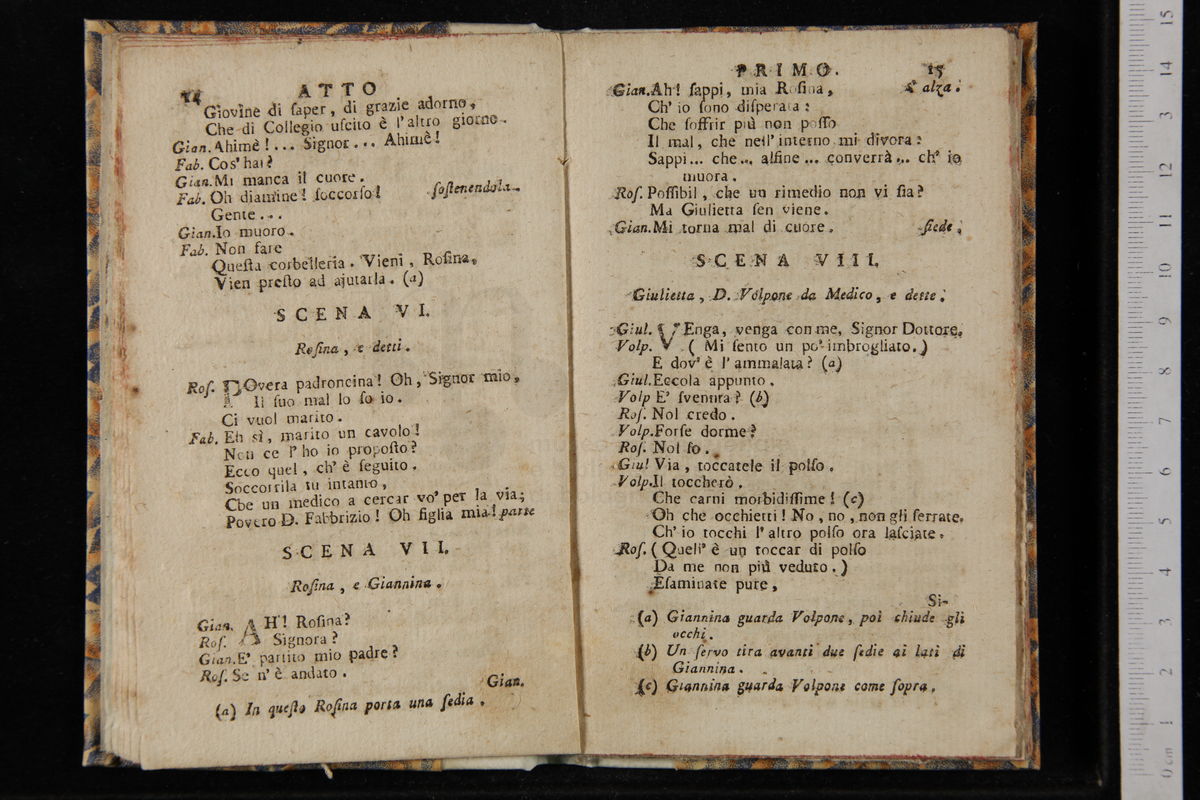 14 ATTO
Giovine di ſaper, di grazie adorno,
Che di Collegio uſcito è l'altro giorno.
Gian. Ahimè!... Signor... Ahimè!
Fab. Cos' hai?
Gian. Mi manca il cuore.
Fab. Oh diamine! ſoccorſo! ſoſtenendola.
Gente...
Gian. Io muoro.
Fab. Non fare
Queſta corbelleria. Vieni, Roſina,
Vien preſto ad ajutarla. (a)
SCENA VI.
Roſina, e detti.
Roſ. POvera padroncina! Oh, Signor mio,
Il ſuo mal lo ſo io.
Ci vuol marito.
Fab. Eh sì, marito un cavolo!
Non ce l'ho io propoſto?
Ecco quel, ch' è ſeguito.
Soccorrila tu intanto,
Che un medico a cercar vo' per la via;
Povero D. Fabbrizio! Oh figlia mia! parte
SCENA VII.
Roſina, e Giannina.
Gian. AH! Roſina?
Roſ. Signora?
Gian. E' partito mio padre?
Roſ. Se n' è andato.
Gian.
(a) In queſto Roſina porta una ſedia.
PRIMO. 15
Gian. Ah! ſappi, mia Roſina, s' alza.
Ch' io ſono diſperata:
Che ſoffrir più non poſſo
Il mal, che nell' interno mi divora:
Sappi... che... alfine... converrà... ch' io
muora.
Roſ. Poſſibil, che un rimedio non vi ſia?
Ma Giulietta ſen viene.
Gian. Mi torna mal di cuore. ſiede.
SCENA VIII.
Giulietta, D. Volpone da Medico, e dette.
Giul. VEnga, venga con me, Signor Dottore.
Volp. (Mi ſento un po' imbrogliato.)
E dov' è l' ammalata? (a)
Giul. Eccola appunto.
Volp E' ſvenuta? (b)
Roſ. Nol credo.
Volp. Forſe dorme?
Roſ. Nol ſo.
Giul Via, toccatele il polſo.
Volp. Il toccherò.
Che carni morbidiſſime! (c)
Oh che occhietti! No, no, non gli ſerrate.
Ch' io tocchi l' altro polſo ora laſciate.
Roſ. (Quell' è un toccar di polſo
Da me non più veduto.)
Eſaminate pure,
Si-
(a) Giannina guarda Volpone, poi chiude gli
occhi.
(b) Un ſervo tira avanti due ſedie ai lati di
Giannina.
(c) Giannina guarda Volpone come ſopra.
0 cm 1 2 3 4 5 6 7 8 9 10 11 12 13 14 15